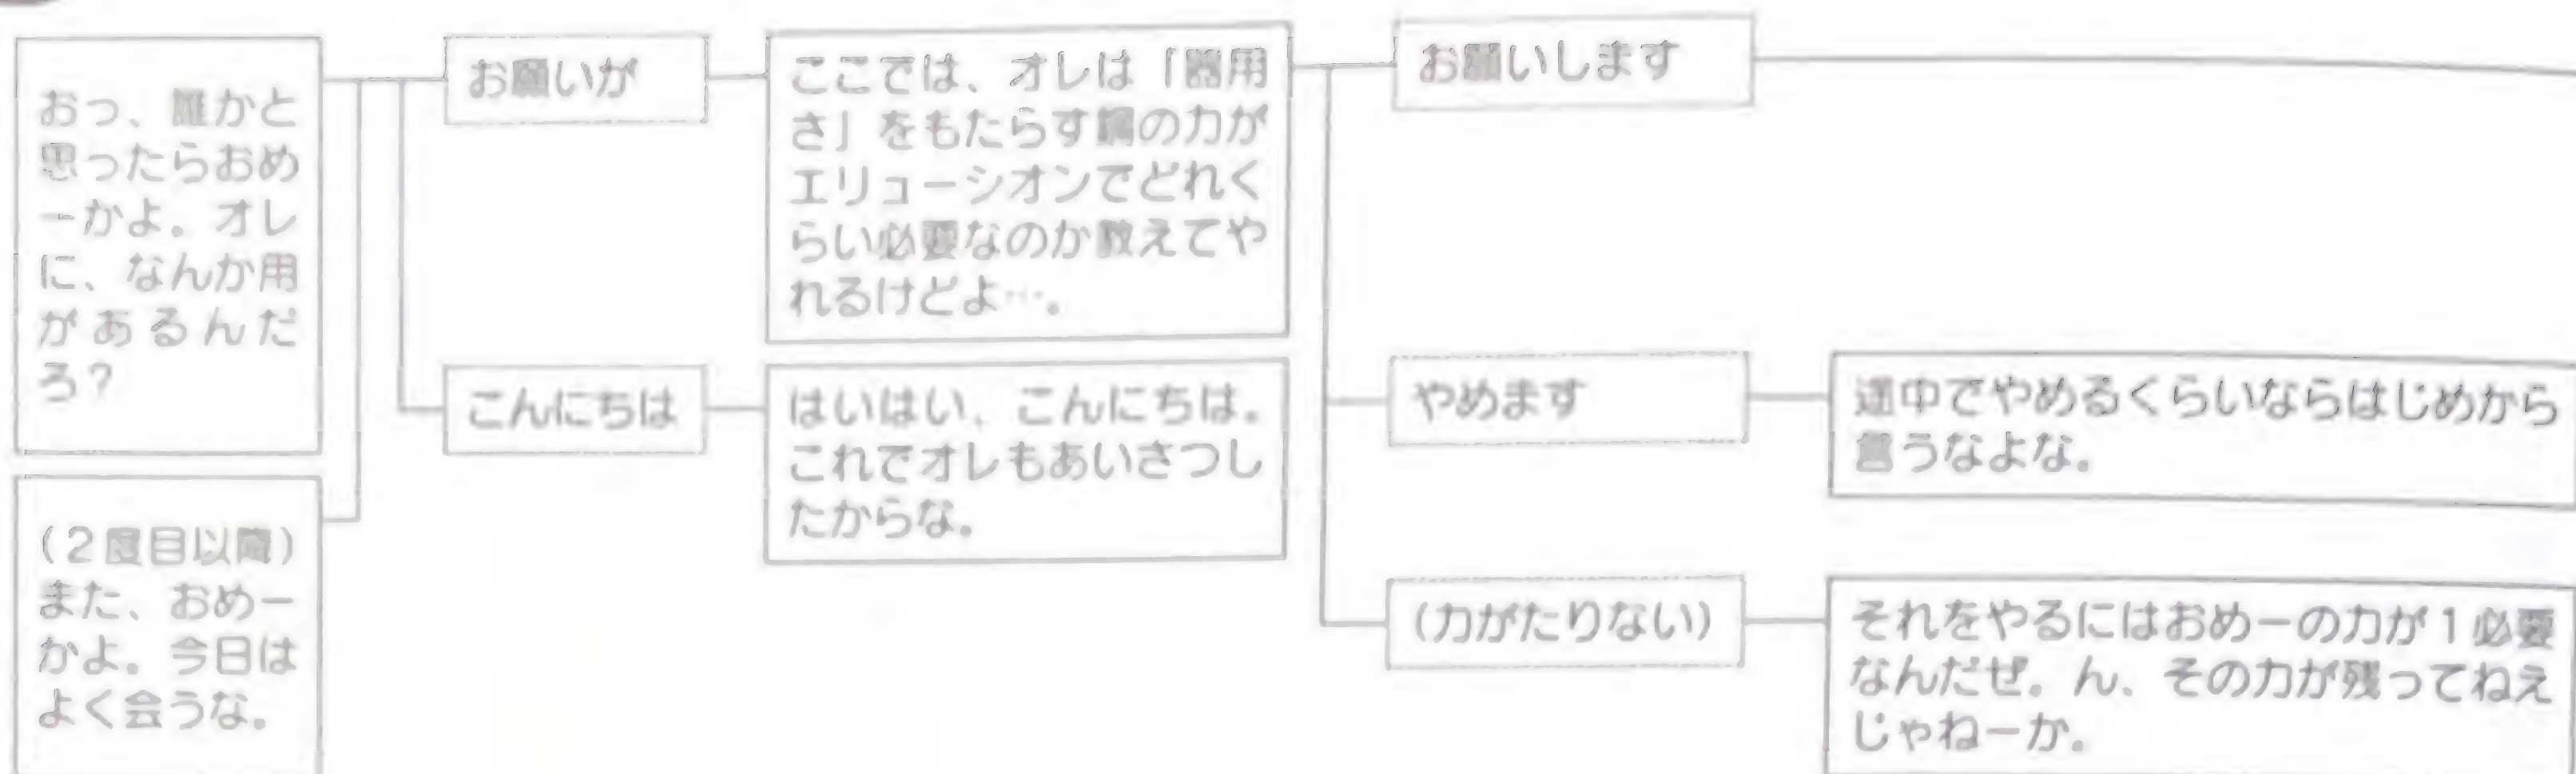 おっ、誰かと
思ったらおめ
ーかよ。オレ
に、なんか用
があるんだ
ろ？
(２度目以降)
また、おめー
かよ。今日は
よく会うな。
お願いが
こんにちは
ここでは、オレは「器用
さ」をもたらす鋼の力が
エリューシオンでどれく
らい必要なのか教えてや
れるけどよ…。
はいはい、こんにちは。
これでオレもあいさつし
たからな。
お願いします
やめます
(力がたりない)
途中でやめるくらいならはじめから
言うなよな。
それをやるにはおめーの力が１必要
なんだぜ。ん、その力が残ってねえ
じゃねーか。